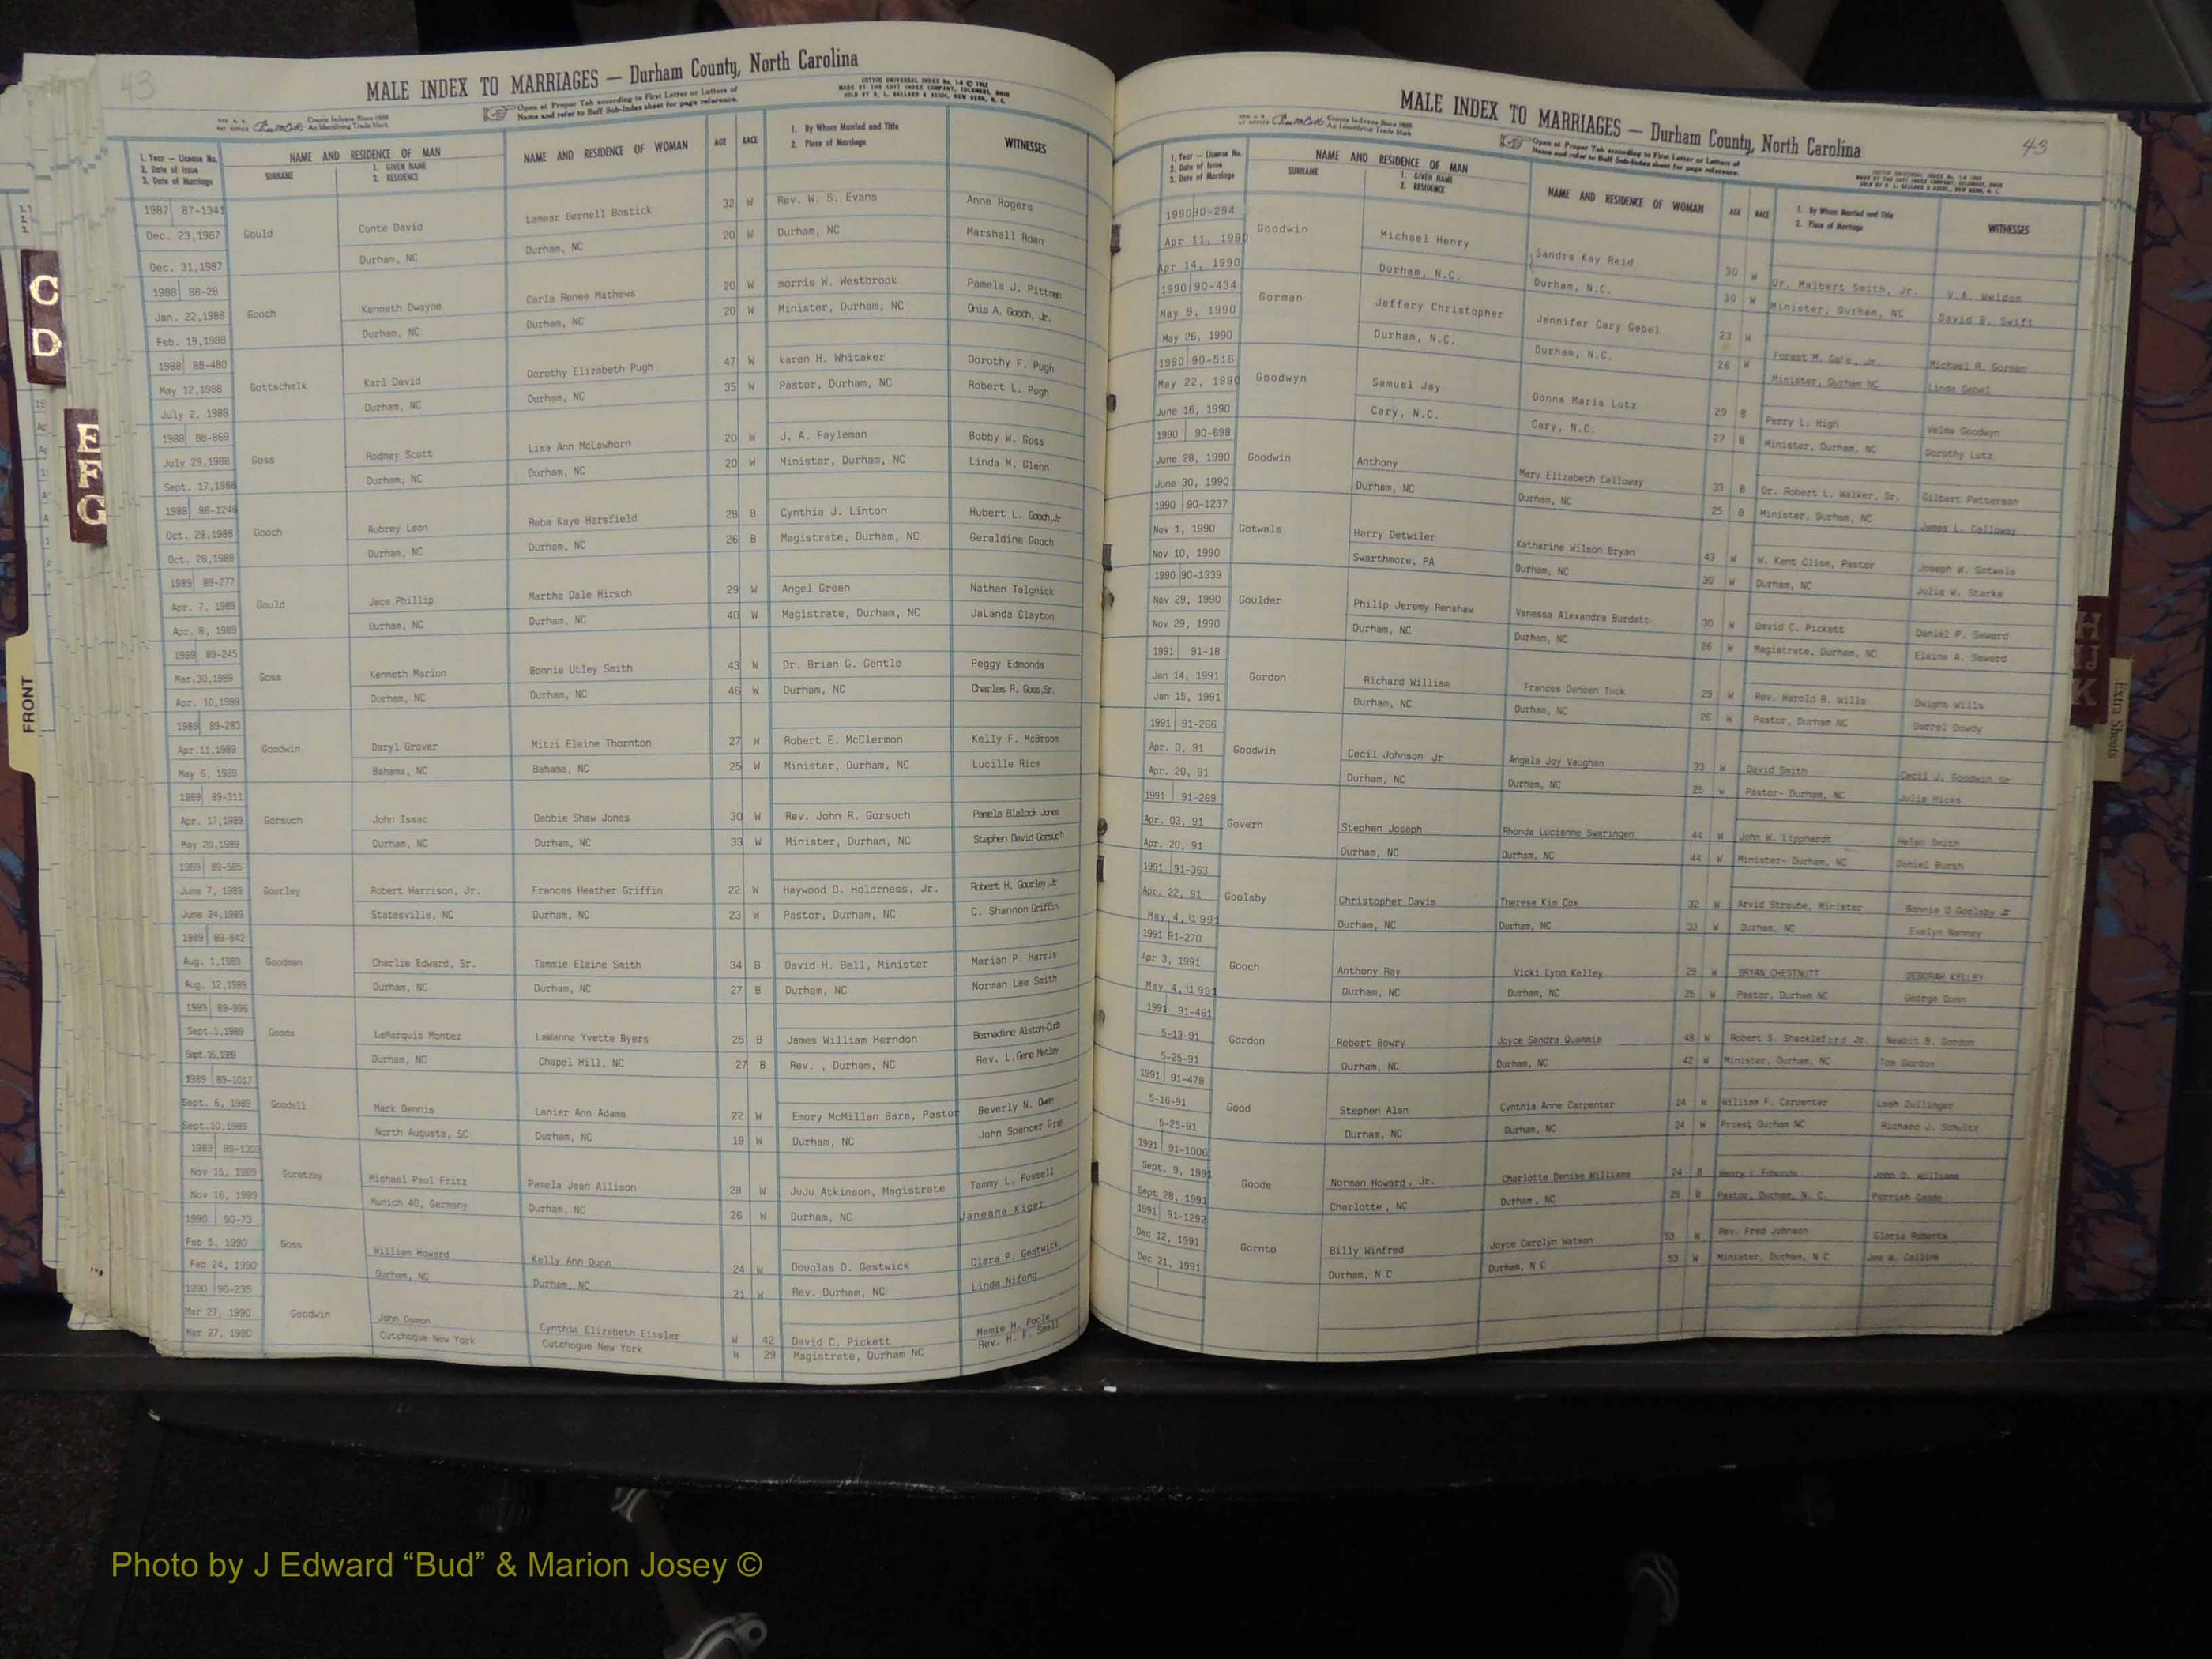 43
MALE INDEX TO MARRIAGES — Durham County, North Carolina
County Indexes Since 1888
An Identifying Trade Mark
Open at Proper Tab according to First Letter or Letters of
Name and refer to Buff Sub-Index sheet for page reference.
1. Year — License No.
2. Date of Issue
3. Date of Marriage
NAME AND RESIDENCE OF MAN
SURNAME
1. GIVEN NAME
2. RESIDENCE
NAME AND RESIDENCE OF WOMAN
AGE
RACE
1. By Whom Married and Title
2. Place of Marriage
WITNESSES
1987 87-1341 Lamear Bernell Bostick 32 W Rev. W. S. Evans Anne Rogers
Dec. 23,1987 Gould Conte David 20 W Durham, NC Marshall Roen
Dec. 31,1987 Durham, NC Durham, NC
1988 88-28 Carla Renee Mathews 20 W morris W. Westbrook Pamela J. Pittman
Jan. 22,1988 Gooch Kenneth Dwayne 20 W Minister, Durham, NC Onis A. Gooch, Jr.
Feb. 19,1988 Durham, NC Durham, NC
1988 88-480 Dorothy Elizabeth Pugh 47 W karen H. Whitaker Dorothy F. Pugh
May 12,1988 Gottschalk Karl David 35 W Pastor, Durham, NC Robert L. Pugh
July 2, 1988 Durham, NC Durham, NC
1988 88-869 Lisa Ann McLawhorn 20 W J. A. Fayleman Bobby W. Goss
July 29,1988 Goss Rodney Scott 20 W Minister, Durham, NC Linda M. Glenn
Sept. 17,1988 Durham, NC Durham, NC
1988 88-1246 Reba Kaye Harsfield 28 B Cynthia J. Linton Hubert L. Gooch,Jr
Oct. 28,1988 Gooch Aubrey Leon 26 B Magistrate, Durham, NC Geraldine Gooch
Oct. 28,1988 Durham, NC Durham, NC
1989 89-277 Martha Dale Hirsch 29 W Angel Green Nathan Talgnick
Apr. 7, 1989 Gould Jace Phillip 40 W Magistrate, Durham, NC JaLanda Clayton
Apr. 8, 1989 Durham, NC Durham, NC
1989 89-245 Bonnie Utley Smith 43 W Dr. Brian G. Gentle Peggy Edmonds
Mar.30,1989 Goss Kenneth Marion 46 W Durham, NC Charles R. Goss,Sr.
Apr. 10,1989 Durham, NC Durham, NC
1989 89-283
Apr.11,1989 Goodwin Daryl Grover Mitzi Elaine Thornton 27 W Robert E. McClermon Kelly F. McBroom
May 6, 1989 Bahama, NC Bahama, NC 25 W Minister, Durham, NC Lucille Rice
1989 89-311
Apr. 17,1989 Gorsuch John Issac Debbie Shaw Jones 30 W Rev. John R. Gorsuch Pamela Blalock Jones
May 20,1989 Durham, NC Durham, NC 33 W Minister, Durham, NC Stephen David Gorsuch
1989 89-585
June 7, 1989 Gourley Robert Harrison, Jr. Frances Heather Griffin 22 W Haywood D. Holdrness, Jr. Robert H. Gourley,Jr
June 24,1989 Statesville, NC Durham, NC 23 W Pastor, Durham, NC C. Shannon Griffin
1989 89-842
Aug. 1,1989 Goodman Charlie Edward, Sr. Tammie Elaine Smith 34 B David H. Bell, Minister Marian P. Harris
Aug. 12,1989 Durham, NC Durham, NC 27 B Durham, NC Norman Lee Smith
1989 89-996
Sept.1,1989 Goods LeMarquis Montez LaWanna Yvette Byers 25 B James William Herndon Bernadine Alston-Cob
Sept.16,1989 Durham, NC Chapel Hill, NC 27 B Rev. , Durham, NC Rev. L.Gene
1989 89-1017
Sept. 6, 1989 Goodell Mark Dennis Lanier Ann Adams 22 W Emory McMillan Bare, Pastor Beverly N. Owen
Sept.10,1989 North Augusta, SC Durham, NC 19 W Durham, NC John Spencer
1989 89-1303
Nov 15, 1989 Goretzky Michael Paul Fritz Pamela Jean Allison 28 W JuJu Atkinson, Magistrate Tammy L. Fussell
Nov 16, 1989 Munich 40, Germany Durham, NC 26 W Durham, NC Janeane Kiger
1990 90-73
Feb 5, 1990 Goss William Howard Kelly Ann Dunn 24 W Douglas D. Gestwick Clara P. Gestwick
Feb 24, 1990 Durham, NC Durham, NC 21 W Rev. Durham, NC Linda Nifong
1990 90-235
Mar 27, 1990 Goodwin John Osmon Cynthia Elizabeth Eissler W 42 David C. Pickett Mamie H. Poole
Mar 27, 1990 Cutchogue New York Cutchogue New York W 29 Magistrate, Durham NC Rev. H. F. Small
MALE INDEX TO MARRIAGES — Durham County, North Carolina
43
County Indexes Since 1888
An Identifying Trade Mark
Open at Proper Tab according to First Letter or Letters of
Name and refer to Buff Sub-Index sheet for page reference.
1. Year — License No.
2. Date of Issue
3. Date of Marriage
NAME AND RESIDENCE OF MAN
SURNAME
1. GIVEN NAME
2. RESIDENCE
NAME AND RESIDENCE OF WOMAN
AGE
RACE
1. By Whom Married and Title
2. Place of Marriage
WITNESSES
1990 90-294
Apr 11, 1990 Goodwin Michael Henry Sandra Kay Reid 30 W Dr. Malbert Smith, Jr. V.A. Weldon
Apr 14, 1990 Durham, N.C. Durham, N.C. 30 W Minister, Durham, NC David B. Swift
1990 90-434
May 9, 1990 Gorman Jeffery Christopher Jennifer Cary Gebel 23 W Forest M. Gale, Jr. Michael R. Gorman
May 26, 1990 Durham, N.C. Durham, N.C. 26 W Minister, Durham NC Linda Gebel
1990 90-516
May 22, 1990 Goodwyn Samuel Jay Donna Maria Lutz 29 B Perry L. High Velma Goodwyn
June 16, 1990 Cary, N.C. Cary, N.C. 27 B Minister, Durham, NC Dorothy Lutz
1990 90-698
June 28, 1990 Goodwin Anthony Mary Elizabeth Calloway 33 B Dr. Robert L. Walker, Sr. Gilbert Patterson
June 30, 1990 Durham, NC Durham, NC 25 B Minister, Durham, NC James L. Calloway
1990 90-1237
Nov 1, 1990 Gotwals Harry Detwiler Katharine Wilson Bryan 43 W W. Kent Clise, Pastor Joseph W. Gotwals
Nov 10, 1990 Swarthmore, PA Durham, NC 30 W Durham, NC Julia W. Starke
1990 90-1339
Nov 29, 1990 Goulder Philip Jeremy Renshaw Vanessa Alexandra Burdett 30 W David C. Pickett Daniel P. Seward
Nov 29, 1990 Durham, NC Durham, NC 26 W Magistrate, Durham, NC Elaine A. Seward
1991 91-18
Jan 14, 1991 Gordon Richard William Frances Deneen Tuck 29 W Rev. Harold B. Wills Dwight Wills
Jan 15, 1991 Durham, NC Durham, NC 26 W Pastor, Durham NC Darrel Dowdy
1991 91-266
Apr. 3, 91 Goodwin Cecil Johnson Jr Angela Joy Vaughan 33 W David Smith Cecil J. Goodwin Sr
Apr. 20, 91 Durham, NC Durham, NC 25 W Pastor- Durham, NC Julia Hicks
1991 91-269
Apr. 03, 91 Govern Stephen Joseph Rhonda Lucienne Swaringen 44 W John W. Lipphardt Helen Smith
Apr. 20, 91 Durham, NC Durham, NC 44 W Minister- Durham, NC Daniel Bursh
1991 91-363
Apr. 22, 91 Goolsby Christopher Davis Theresa Kim Cox 32 W Arvid Straube, Minister Bonnie D Goolsby Jr
May 4, 1991 Durham, NC Durham, NC 33 W Durham, NC Evelyn Nanney
1991 91-270
Apr 3, 1991 Gooch Anthony Ray Vicki Lynn Kelley 29 W BRYAN CHESTNUTT DEBORAH KELLEY
May 4, 1991 Durham, NC Durham, NC 25 W Pastor, Durham NC George Dunn
1991 91-461
5-13-91 Gordon Robert Bowry Joyce Sandra Quammie 48 W Robert S. Shackleford Jr. Nesbit B. Gordon
5-25-91 Durham, NC Durham, NC 42 W Minister, Durham, NC Tom Gordon
1991 91-478
5-16-91 Good Stephen Alan Cynthia Anne Carpenter 24 W William F. Carpenter Leah Zullinger
5-25-91 Durham, NC Durham, NC 24 W Priest Durham NC Richard J. Schultz
1991 91-1006
Sept. 9, 1991 Goode Norman Howard, Jr. Charlotte Denise Williams 24 B Henry L Edmonds John D. Williams
Sept 28, 1991 Charlotte, NC Durham, NC 26 B Pastor, Durham, N. C. Parrish Goode
1991 91-1292
Dec 12, 1991 Gornto Billy Winfred Joyce Carolyn Watson 53 W Rev. Fred Johnson Gloria Roberts
Dec 21, 1991 Durham, N C Durham, N C 53 W Minister, Durham, N C Joe W. Collins
C
D
E
F
G
FRONT
H
I J
K
Extra Sheets
Photo by J Edward “Bud” & Marion Josey ©